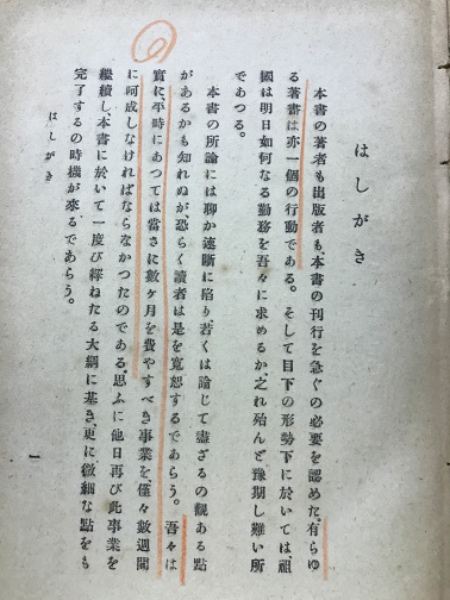 はしがき
本書の著者も出版者も、本書の刊行を急ぐの必要を認めた。有らゆ
る著書は亦一個の行動である。そして目下の形勢下に於いては、祖
國は明日如何なる勤務を吾々に求めるか、之れ殆んど豫期し難い所
であつる。
本書の所論には聊か速斷に陷り、若くは論じて盡ざるの觀ある點
があるかも知れぬが、恐らく讀者は是を寬恕するであらう。吾々は
實に平時にあつては當さに數ヶ月を費やすべき事業を、僅々數週間
に呵成しなければならなかつたのである。思ふに他日再び此事業を
繼續し、本書に於いて一度び繹ねたる大綱に基き、更に微細な點をも
完了するの時機が來るであらう。
はしがき
一